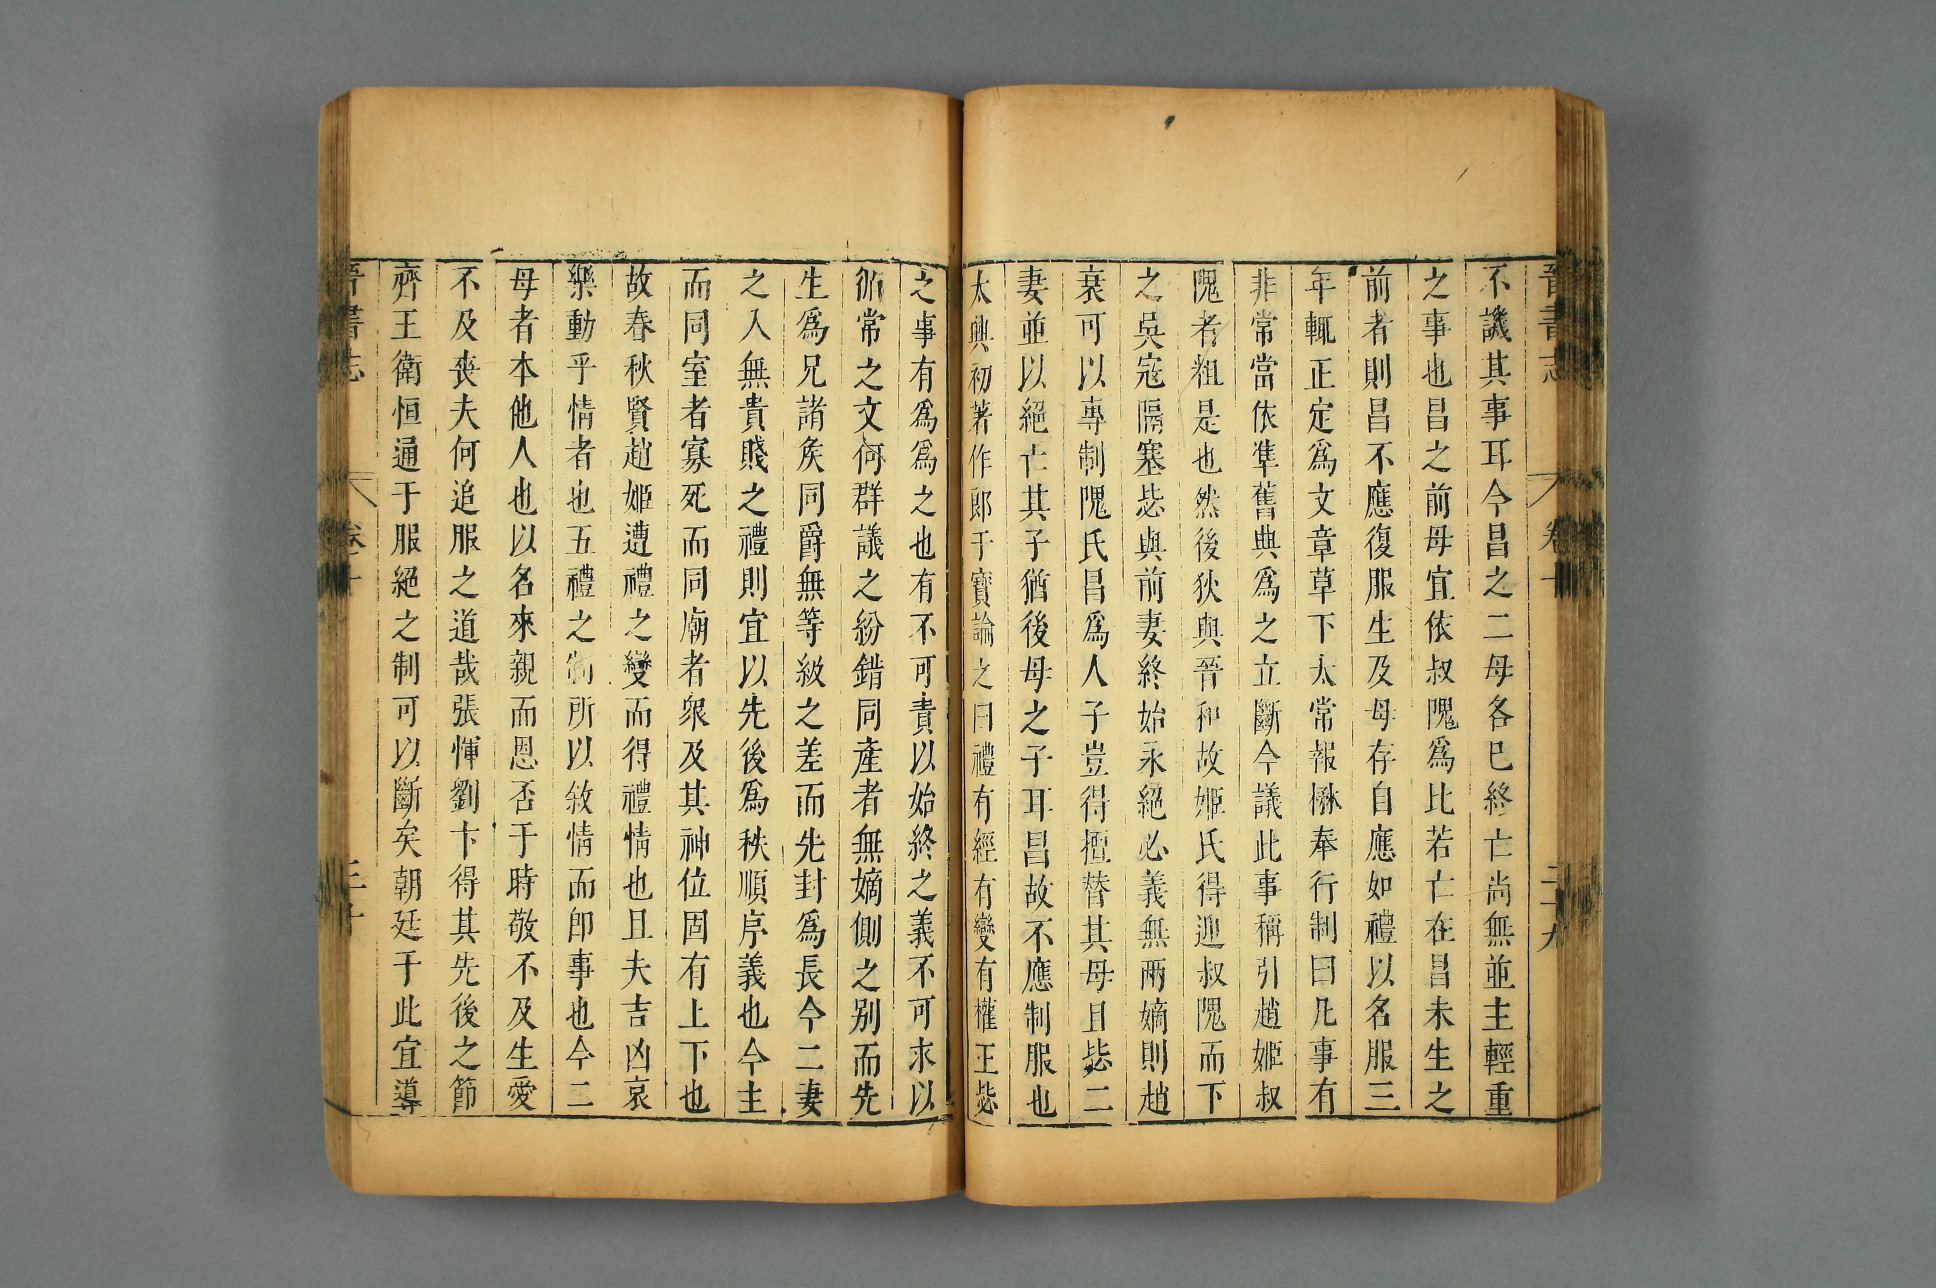 晉書志 卷十 二十九
不譏其事耳今昌之二母各已終亡尚無並主輕重
之事也昌之前母宜依叔隗爲比若亡在昌未生之
前者則昌不應復服生及母存自應如禮以名服三
年輒正定爲文章草下太常報楙奉行制曰凡事有
非常當依準舊典爲之立斷今議此事稱引趙姬叔
隗者粗是也然後狄與晉和故姬氏得迎叔隗而下
之吳寇隔塞毖與前妻終始永絕必義無兩嫡則趙
衰可以專制隗氏昌爲人子豈得擅替其母且毖二
妻並以絕亡其子猶後母之子耳昌故不應制服也
太興初著作郎干寶論之曰禮有經有變有權王毖
之事有爲爲之也有不可責以始終之義不可求以
循常之文何群議之紛錯同產者無嫡側之别而先
生爲兄諸矦同爵無等級之差而先封爲長今二妻
之入無貴賤之禮則宜以先後爲秩順序義也今主
而同室者寡死而同廟者衆及其神位固有上下也
故春秋賢趙姬遭禮之變而得禮情也且夫吉凶哀
樂動乎情者也五禮之制所以敘情而卽事也今二
母者本他人也以名來親而恩否于時敬不及生愛
不及喪夫何追服之道哉張惲劉卞得其先後之節
齊王衛恒通于服絕之制可以斷矣朝廷于此宜導
晉書志 卷十 三十